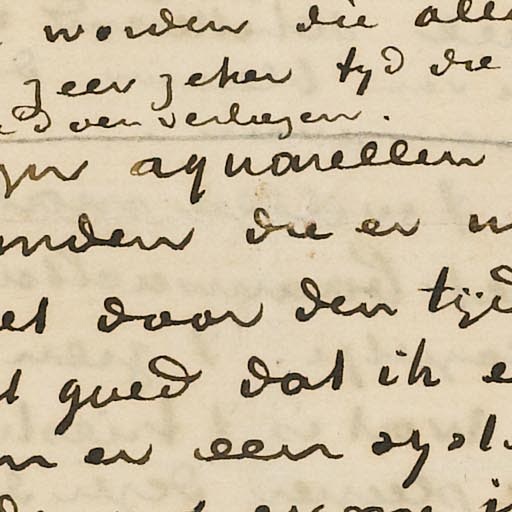 worden die alle
zeer zeker tyd die
verliezen.
zyn aquarellen
onden die er m
et door den tijd
t goed dat ik e
n er een syst